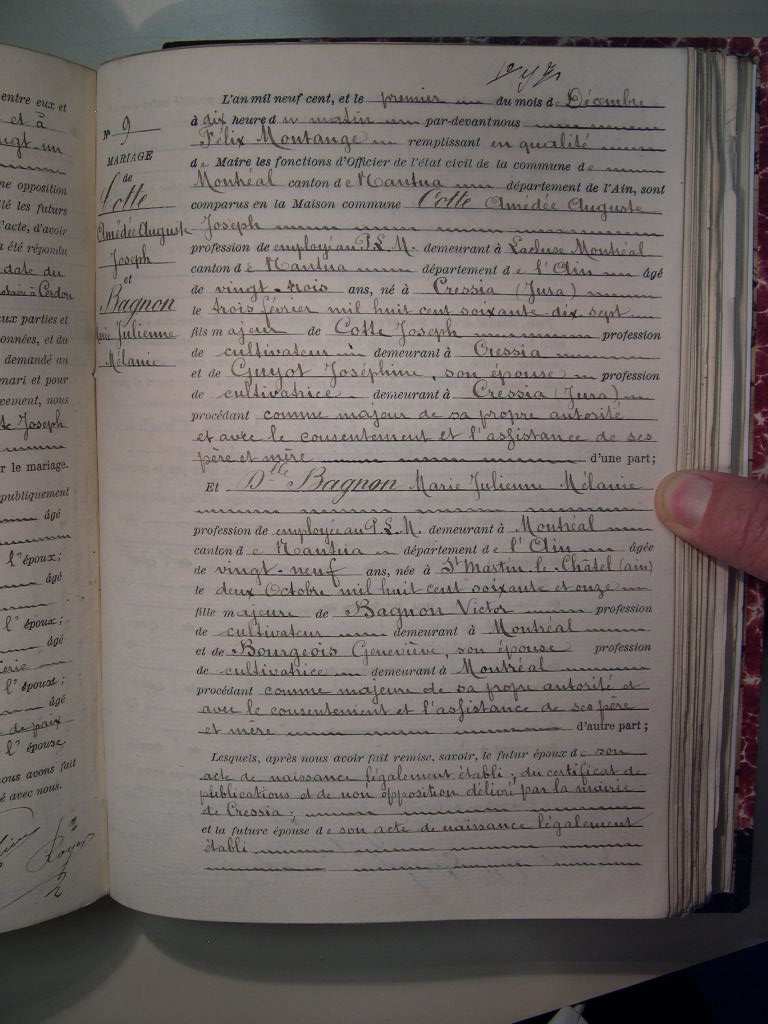 entre eux et
et à
vingt un
une opposition
lé les futurs
l'acte, d'avoir
a été répondu
date du
à Cerdon
eux parties et
données, et du
demandé au
mari et pour
vement, nous
Joseph
r le mariage.
publiquement
âgé
l'époux;
âgé
l'époux;
âgé
l'époux;
âgé
de paix
l'épouse
nous avons fait
é avec nous.
N° 9
MARIAGE
de
Cotte
Amédée Auguste
Joseph
et
Bagnon
Marie Julienne
Mélanie
L'an mil neuf cent, et le premier du mois de Décembre
à dix heure du matin par-devant nous
Félix Montange remplissant en qualité
de Maire les fonctions d'Officier de l'état civil de la commune de
Montréal canton de Nantua département de l'Ain, sont
comparus en la Maison commune Cotte Amédée Auguste
Joseph
profession de employé au P.L.M. demeurant à Lacluse Montréal
canton de Nantua département de l'Ain âgé
de vingt-trois ans, né à Cressia (Jura)
le trois février mil huit cent soixante dix sept
fils majeur de Cotte Joseph profession
de cultivateur demeurant à Cressia
et de Guyot Joséphine, son épouse profession
de cultivatrice demeurant à Cressia (Jura)
procédant comme majeur de sa propre autorité
et avec le consentement et l'assistance de ses
père et mère d'une part;
Et Dlle Bagnon Marie Julienne Mélanie
profession de employée au P.L.M. demeurant à Montréal
canton de Nantua département de l'Ain âgée
de vingt-neuf ans, née à St Martin le Châtel (ain)
le deux Octobre mil huit cent soixante et onze
fille majeure de Bagnon Victor profession
de cultivateur demeurant à Montréal
et de Bourgeois Geneviève, son épouse profession
de cultivatrice demeurant à Montréal
procédant comme majeure de sa propre autorité et
avec le consentement et l'assistance de ses père
et mère d'autre part;
Lesquels, après nous avoir fait remise, savoir, le futur époux de son
acte de naissance légalement établi; du certificat de
publications et de non opposition délivré par la mairie
de Cressia;
et la future épouse de son acte de naissance légalement
établi